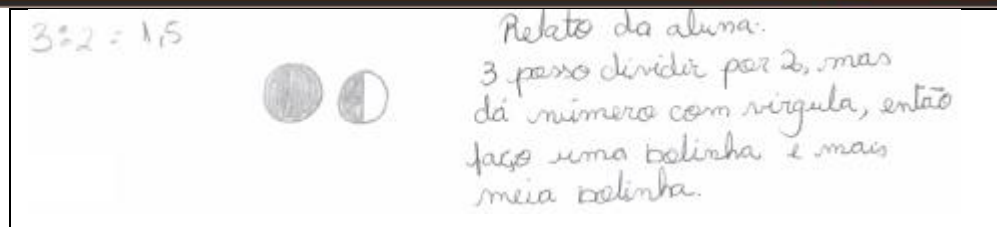 3÷2 = 1,5
Relato da aluna:
3 posso dividir por 2, mas
dá número com vírgula, então
faço uma bolinha e mais
meia bolinha.